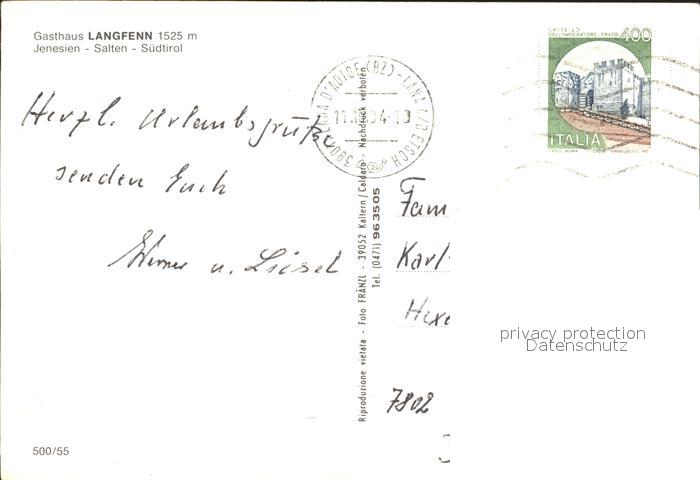 Gasthaus LANGFENN 1525 m
Jenesien - Salten - Südtirol
Herzl. Urlaubsgrüße
senden Euch
Werner u. Liesel
500/55
Riproduzione vietata - Foto FRÄNZL - 39052 Kaltern/Caldaro - Nachdruck verboten
Tel. (0471) 963505
LANA D'ADIGE (BZ) - LANA A/D ETSCH
CASTELLO
DELL'IMPERATORE - PRATO
400
ITALIA
Fam
Karl
Hexe
7802
privacy protection
Datenschutz